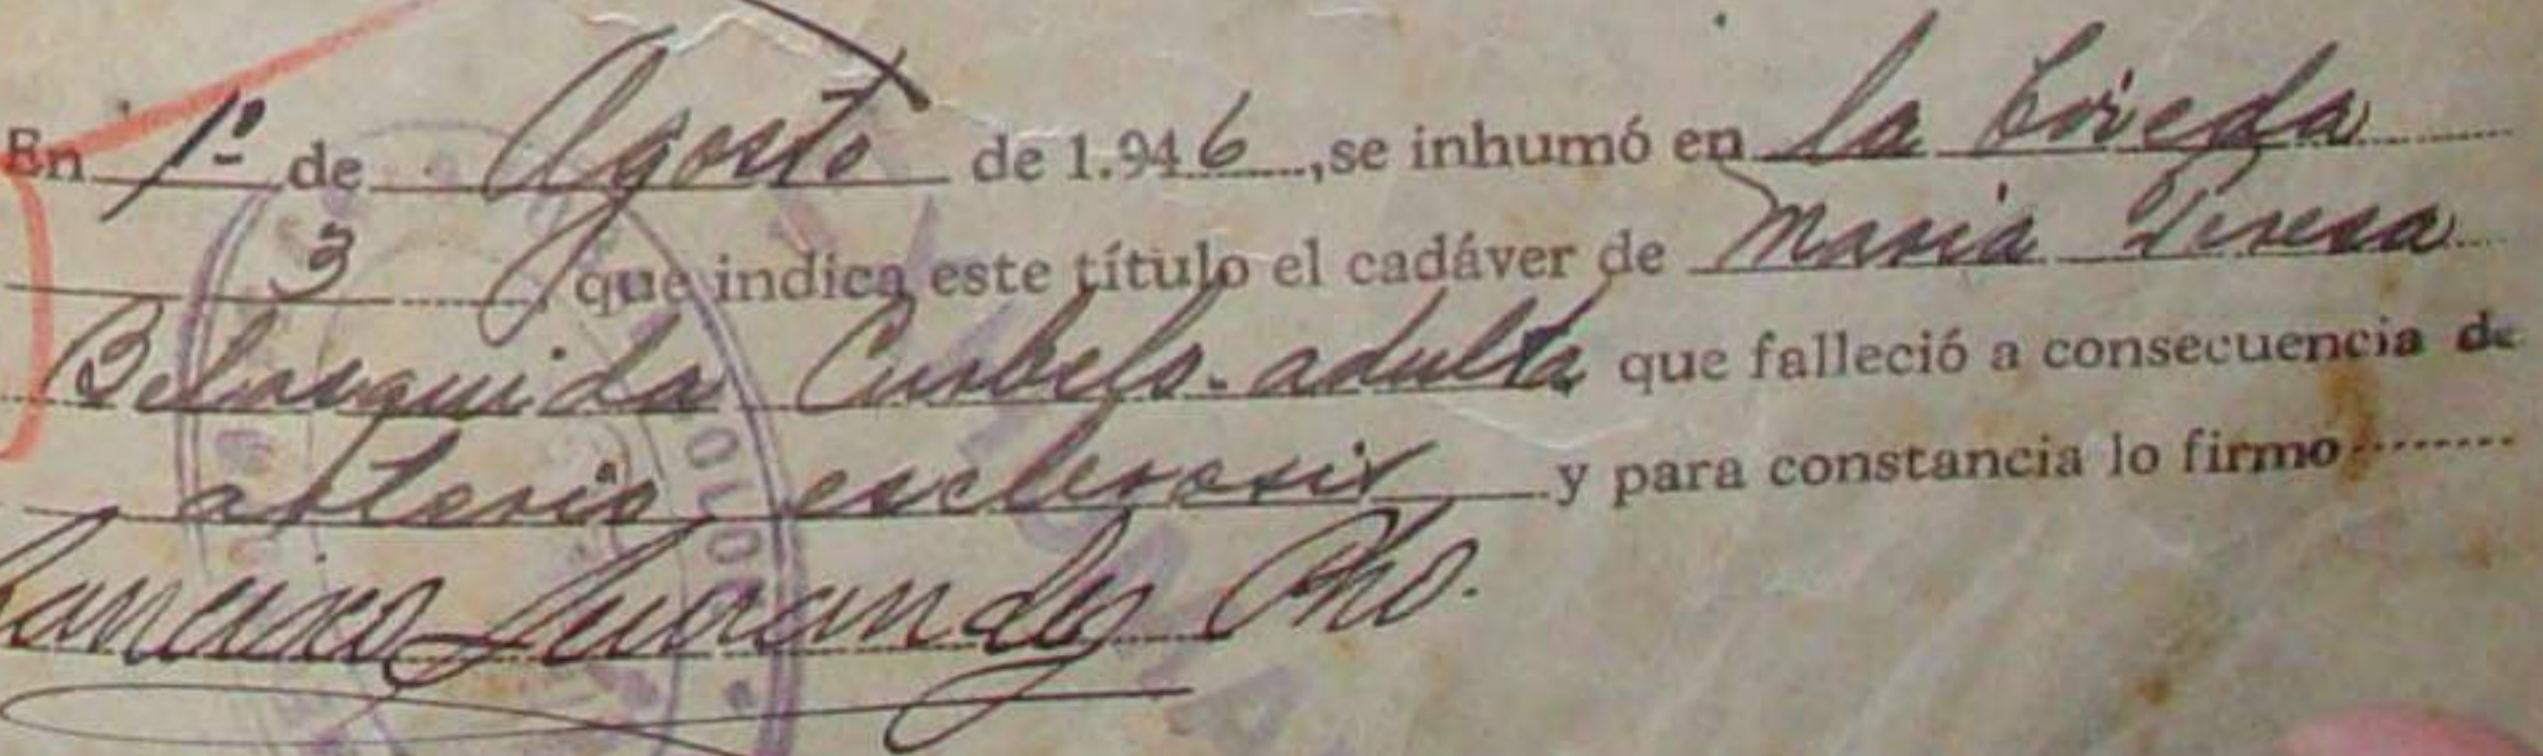 En 1º de Agosto de 1.946, se inhumó en la boveda
3, que indica este título el cadáver de Maria Teresa
Belausquida Curbelo. adulta que falleció a consecuencia de
arterio esclerosis y para constancia lo firmo
Pbo.